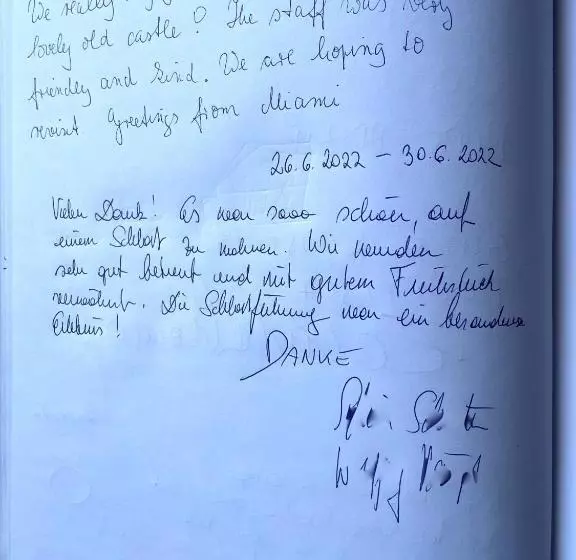 We really
lovely old castle! The staff was very
friendly and kind. We are hoping to
revisit Greetings from Miami
26.6.2022 – 30.6.2022
Vielen Dank! Es war sooo schön, auf
einem Schloß zu wohnen. Wir wurden
sehr gut betreut und mit gutem Frühstück
verwöhnt. Die Schloßführung war ein besonderes
Erlebnis!
DANKE